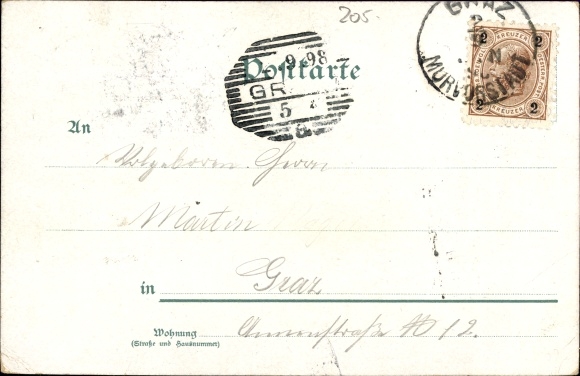 205.
GRAZ
MURVORSTADT
2 KREUZER 2
2 KREUZER 2
Postkarte
9.98
GR
5
8
An
Wolgeboren Herrn
Martin
in Graz
Wohnung
(Straße und Hausnummer)
Annenstraße № 12.